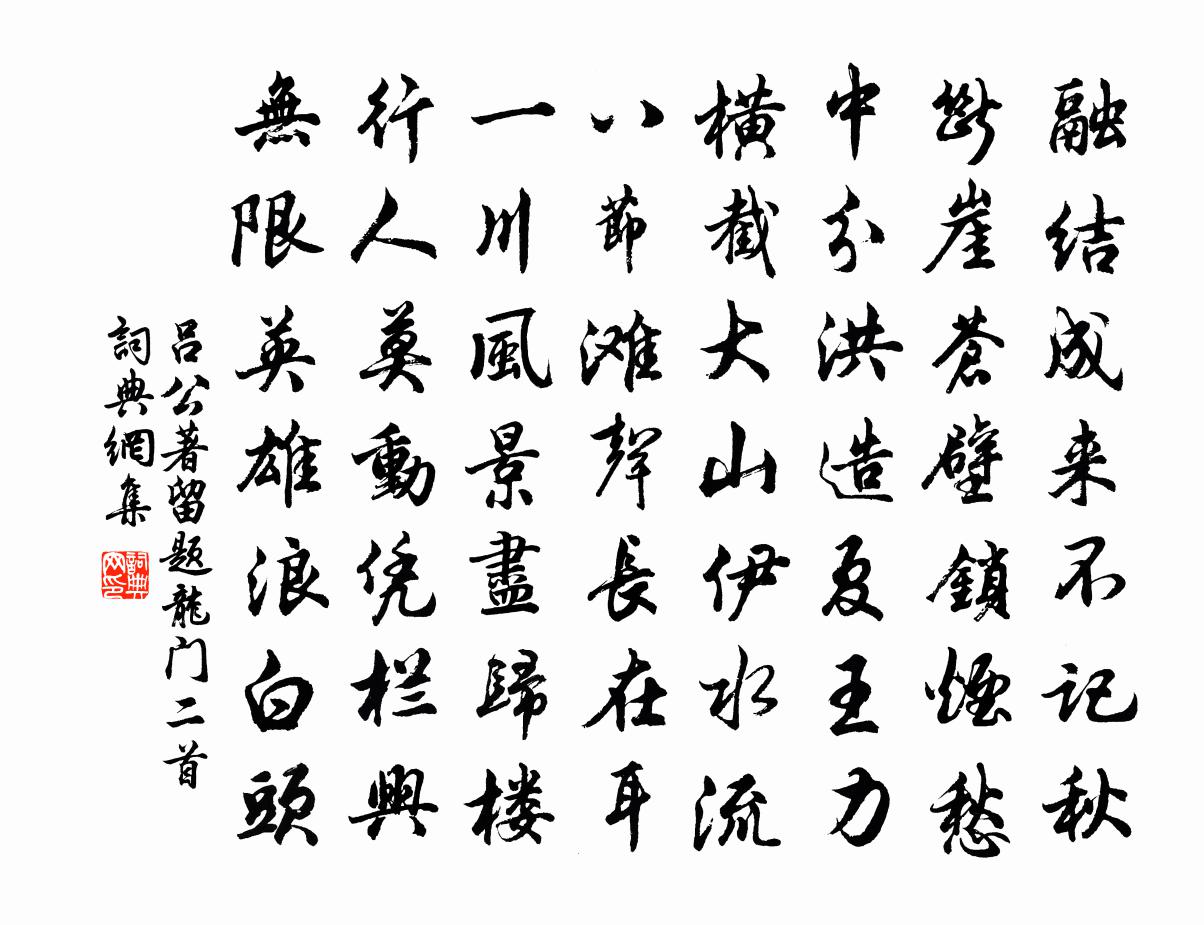 融结成来不记秋
斷崖蒼壁鎖煙愁
中分洪造夏王力
橫截大山伊水流
八節滩聲長在耳
一川風景盡歸楼
行人莫動凭栏興
無限英雄浪白頭
呂公著留题龍门二首
詞典網集
詞典網印